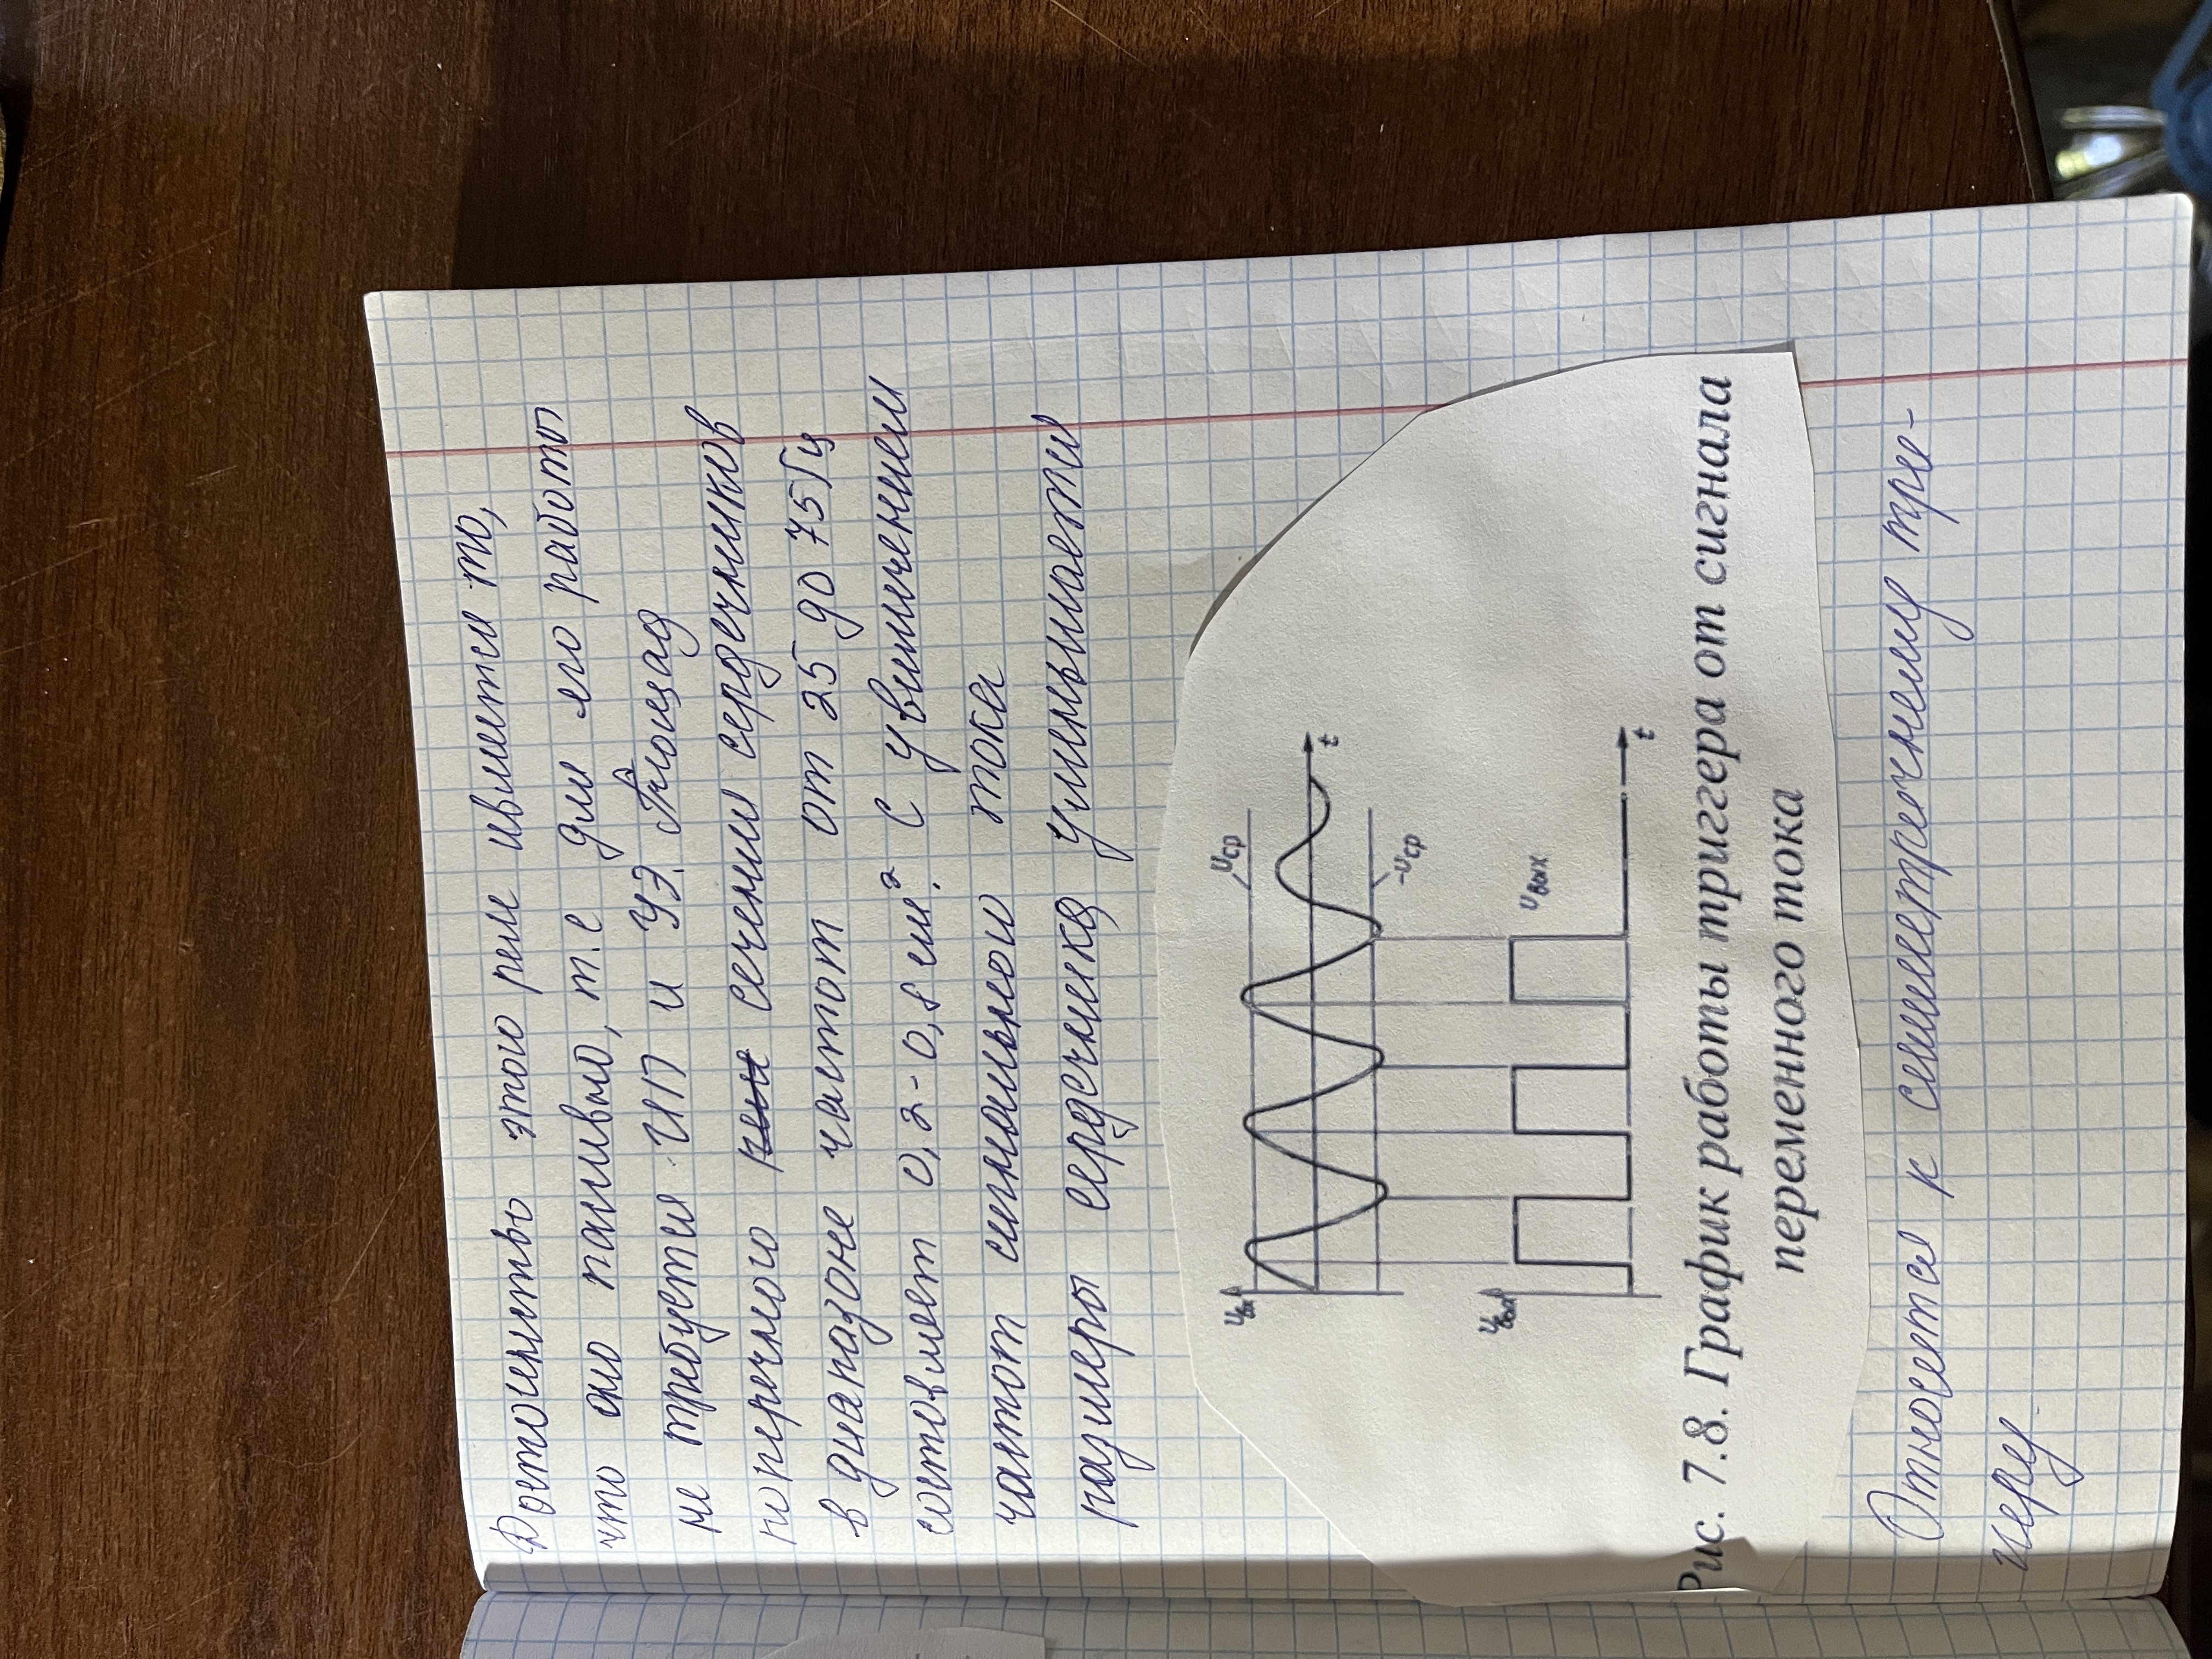 Достоинство этого реле является то,
что оно пассивно, т.е для его работы
не требуется ИП и УЭ. Площад
поперечного сечения сердечников
в диапазоне частот от 25 до 75 Гц
составляет 0,2-0,8 см². С увеличением
частот сигнального тока
размеры сердечника уменьшается
Uвх
Uср
t
-Uср
Uвых
Uвых
t
Рис. 7.8. График работы триггера от сигнала
переменного тока
Относется к симметречнему тре-
геру.